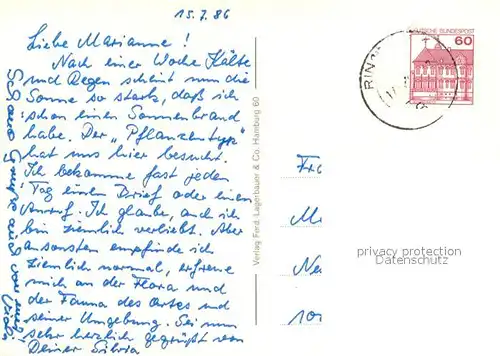 15.7.86
Liebe Marianne!
Nach einer Woche Kälte
und Regen scheint nun die
Sonne so stark, daß ich
schon einen Sonnenbrand
habe. Der "Pflanzentyp"
hat uns hier besucht.
Ich bekomme fast jeden
Tag einen Brief oder einen
Anruf. Ich glaube, auch ich
bin ziemlich verliebt. Aber
ansonsten empfinde ich
ziemlich normal, erfreue
mich an der Flora und
der Fauna des Ortes und
seiner Umgebung. Sei nun
sehr herzlich gegrüßt von
Deiner Silvia
Schöne Grüße auch von
Verlag Ferd. Lagerbauer & Co. Hamburg 60
DEUTSCHE BUNDESPOST
60
RIN
privacy protection
Datenschutz